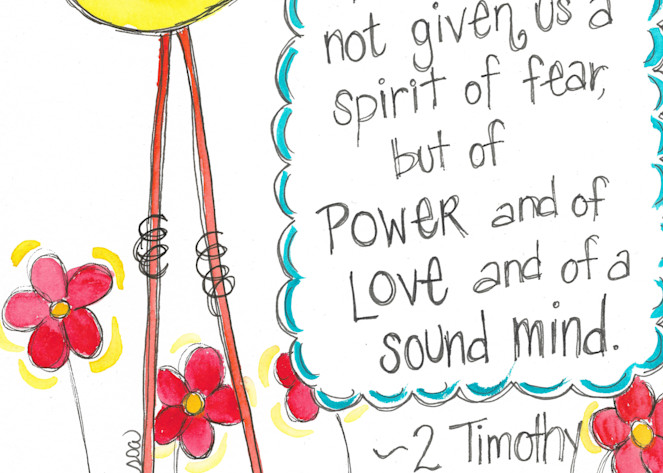 not given us a
spirit of fear,
but of
POWER and of
LOVE and of a
sound mind.
~2 Timothy